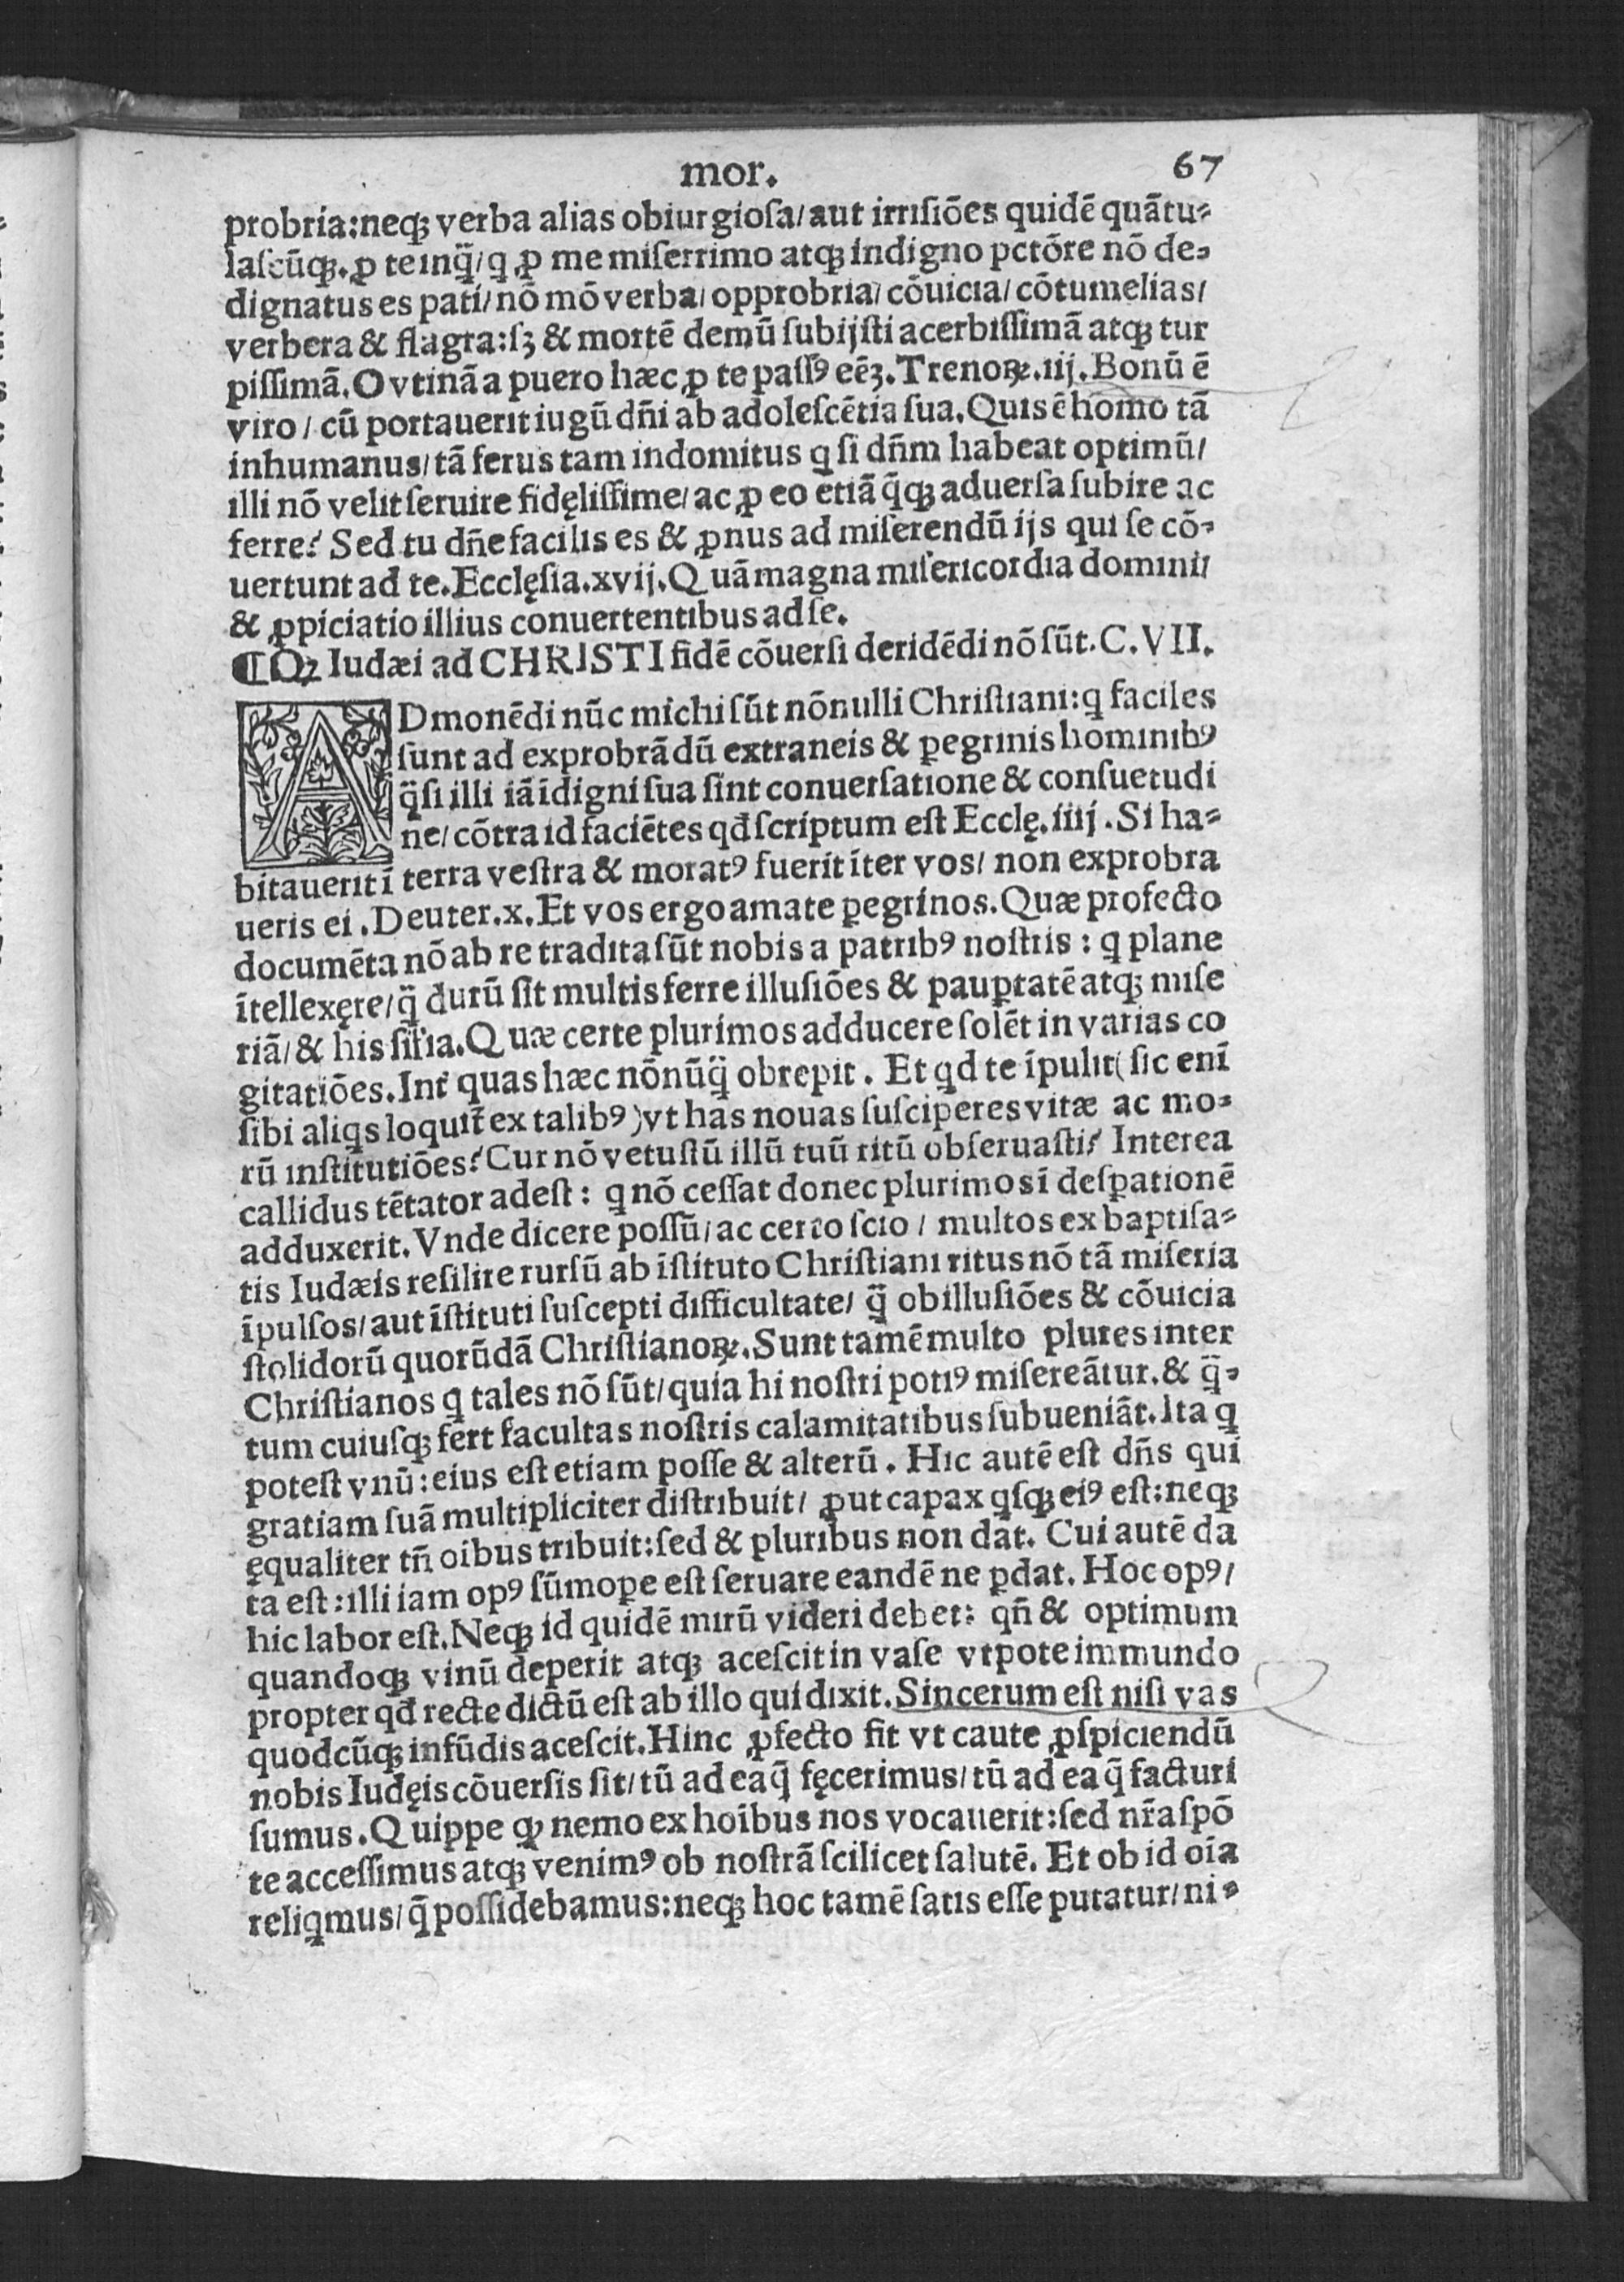 mor.
67
probria:neqꝫ verba alias obiurgiosa/aut irrisiões quidē quātu⸗
lascūqꝫ.ꝓ te inq̃/q ꝓ me miserrimo atqꝫ indigno pctōre nō de⸗
dignatus es pati/nō mō verba/opprobria/cōuicia/cōtumelias/
verbera & flagra:sꝫ & mortē demū subijsti acerbissimā atqꝫ tur
pissimā.O vtinā a puero hæc ꝓ te passꝰ eēꝫ.Trenoꝝ.iij.Bonū ē
viro/cū portauerit iugū dñi ab adolescētia sua.Quis ē homo tā
inhumanus/tā ferus tam indomitus q si dñm habeat optimū/
illi nō velit seruire fidęlissime/ac ꝓ eo etiā q̃qꝫ aduersa subire ac
ferre? Sed tu dñe facilis es & ꝓnus ad miserendū ijs qui se cō⸗
uertunt ad te.Ecclęsia.xvij.Quā magna misericordia domini/
& ꝓpiciatio illius conuertentibus ad se.
¶Qꝫ Iudæi ad CHRISTI fidē cōuersi deridēdi nō sūt.C.VII.
ADmonēdi nūc michi sūt nōnulli Christiani:q faciles
sunt ad exprobrādū extraneis & ꝑegrinis hominibꝰ
q̃si illi iā īdigni sua sint conuersatione & consuetudi
ne/cōtra id faciētes qđ scriptum est Ecclę.iiij.Si ha⸗
bitauerit ī terra vestra & moratꝰ fuerit īter vos/non exprobra
ueris ei.Deuter.x.Et vos ergo amate ꝑegrinos.Quæ profecto
documēta nō ab re tradita sūt nobis a patribꝰ nostris:q plane
ītellexęre/q̃ durū sit multis ferre illusiões & pauꝑtatē atqꝫ mise
riā/& his sil'ia.Quæ certe plurimos adducere solēt in varias co
gitatiões.Int' quas hæc nōnūq̃ obrepit.Et qd te īpulit(sic enī
sibi aliqs loquit̃ ex talibꝰ)vt has nouas susciperes vitæ ac mo⸗
rū institutiões?Cur nō vetustū illū tuū ritū obseruasti? Interea
callidus tētator adest:q nō cessat donec plurimos ī desꝑationē
adduxerit.Vnde dicere possū/ac certo scio/multos ex baptisa⸗
tis Iudæis resilire rursū ab īstituto Christiani ritus nō tā miseria
īpulsos/aut īstituti suscepti difficultate/q̃ ob illusiões & cōuicia
stolidorū quorūdā Christianoꝝ.Sunt tamē multo plures inter
Christianos q tales nō sūt/quia hi nostri potiꝰ misereātur.& q̃⸗
tum cuiusqꝫ fert facultas nostris calamitatibus subueniāt.Ita q
potest vnū:eius est etiam posse & alterū.Hic autē est dñs qui
gratiam suā multipliciter distribuit/ꝓut capax qsqꝫ eiꝰ est:neqꝫ
ęqualiter tñ oibus tribuit:sed & pluribus non dat.Cui autē da
ta est:illi iam opꝰ sūmoꝑe est seruare eandē ne ꝑdat.Hoc opꝰ/
hic labor est.Neqꝫ id quidē mirū videri debet:qñ & optimum
quandoqꝫ vinū deperit atqꝫ acescit in vase vtpote immundo
propter qđ recte dictū est ab illo qui dixit.Sincerum est nisi vas
quodcūqꝫ infūdis acescit.Hinc ꝓfecto fit vt caute ꝓspiciendū
nobis Iudęis cōuersis sit/tū ad ea q̄ fęcerimus/tū ad ea q̄ facturi
sumus.Quippe ꝙ nemo ex hoibus nos vocauerit:sed nr̃a spō
te accessimus atqꝫ venimꝰ ob nostrā scilicet salutē.Et ob id oīa
reliqmus/q̄ possidebamus:neqꝫ hoc tamē satis esse putatur/ni⸗